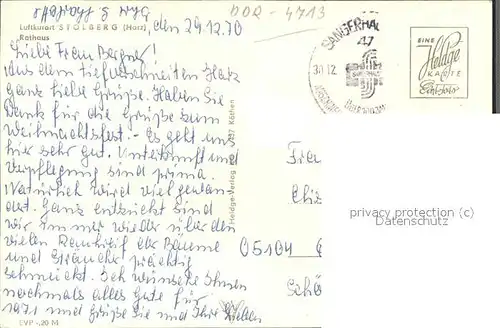 DDR - 4713
Luftkurort STOLBERG (Harz)
Rathaus
den 29.12.70
Liebe Frau Bergner!
Aus dem tiefverschneiten Harz
ganz liebe Grüße. Haben Sie
Dank für die Grüße zum
Weihnachtsfest. - Es geht uns
hier sehr gut. Unterkunft und
Verpflegung sind prima.
Natürlich wird viel gewan-
dert. Ganz entzückt sind
wir immer wieder über den
vielen Rauhreif der Bäume
und Sträucher prächtig
schmückt. Ich wünsche Ihnen
nochmals alles Gute für
1971 und grüße Sie und Ihre Lieben
EVP -,20 M
Heldge-Verlag 437 Köthen
SANGERHAU
47
30.12
EINE
Heldge
KARTE
Echt Foto
Frau
Chri
05104
Schö
privacy protection (c)
Datenschutz